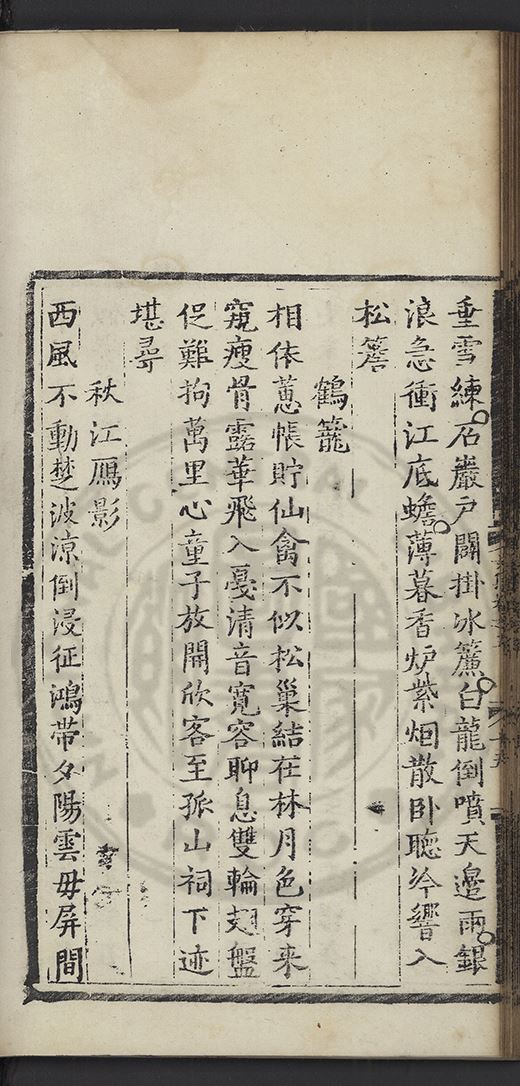 重雪練石巖戶闢掛冰簾白龍倒噴天邊雨銀
浪急衝江底蟾薄暮香炉紫烟散卧聽泠響入
松簷
鶴籠
相依蕙帳貯仙禽不似松巢結在林月色穿來
窺瘦骨露華飛入戛清音寛容聊息雙輪翅盤
促難拘萬里心童子放開欣客至孤山祠下迹
堪尋
秋江鴈影
西風不動楚波凉倒浸征鴻帶夕陽雲毋屏間